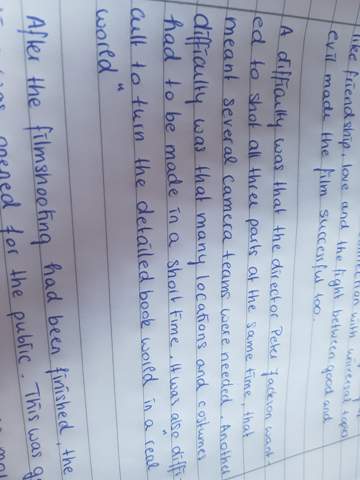 like friendship, love and the fight between good and
evil made the film successful too.
A difficulty was that the director Peter Jackson want-
ed to shot all three parts at the same time, that
meant several camera teams were needed. Another
difficulty was that many locations and costumes
had to be made in a short time. It was also diffi
cult to turn the detailed book world in a real
world"
After the filmshooting had been finished, the
opened for the public. This was